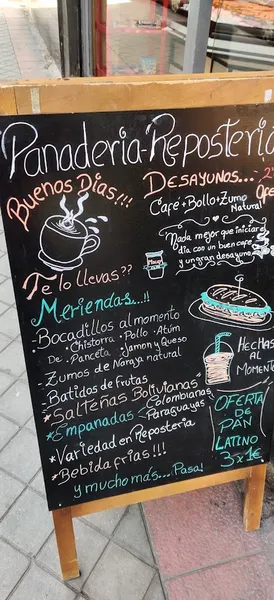 Panadería-Repostería
Buenos Días!!!
Desayunos...
Café+Bollo+Zumo
Natural
Nada mejor que iniciar el
día con un buen café
y un gran desayuno
Te lo llevas??
Meriendas...!!
-Bocadillos al momento
De
·Chistorra ·Pollo ·Atún
·Panceta ·Jamon y Queso
-Zumos de Naraja natural
-Batidos de frutas
*Salteñas Bolivianas*
*Empanadas
-Colombianas
-Paraguayas
*Variedad en Reposteria
*Bebida frias!!!
y mucho más... Pasa!
Hechas
al
momento
Oferta
de
Pan
Latino
3x1€